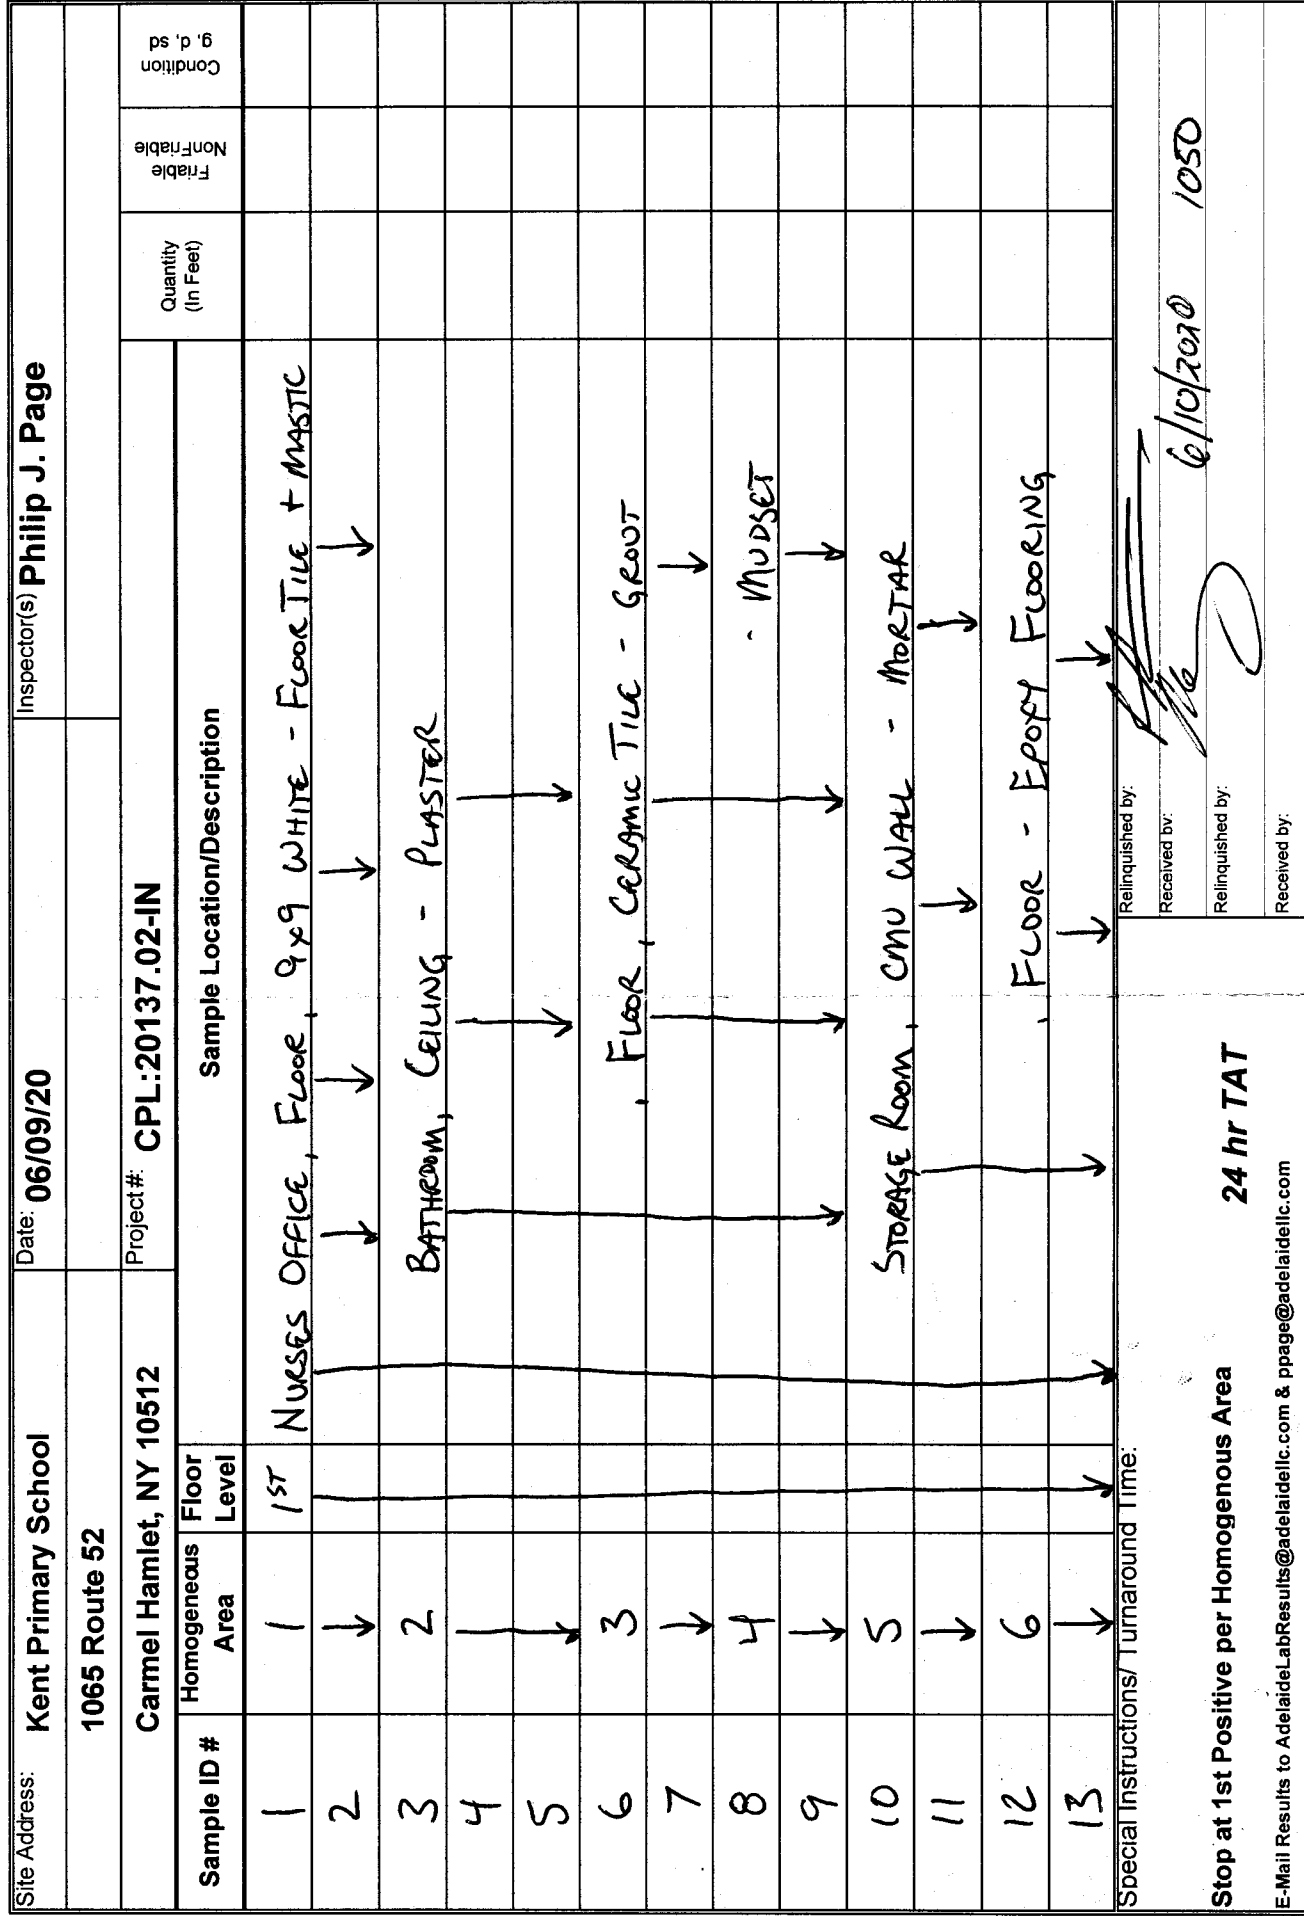 Site Address: Kent Primary School Date: 06/09/20 Inspector(s) Philip J. Page
1065 Route 52
Carmel Hamlet, NY 10512 Project #: CPL:20137.02-IN
Sample ID # Homogeneous Area Floor Level Sample Location/Description Quantity (In Feet) Friable NonFriable Condition g, d, sd
1 1 1ST NURSES OFFICE, FLOOR, 9x9 WHITE - FLOOR TILE + MASTIC
2
3 2 BATHROOM, CEILING - PLASTER
4
5
6 3 , FLOOR, CERAMIC TILE - GROUT
7
8 4 - MUDSET
9
10 5 STORAGE ROOM, CMU WALL - MORTAR
11
12 6 , FLOOR - EPOXY FLOORING
13
Special Instructions/ Turnaround Time:
Stop at 1st Positive per Homogenous Area 24 hr TAT
E-Mail Results to AdelaideLabResults@adelaidellc.com & ppage@adelaidellc.com
Relinquished by:
Received by: 6/10/2020 1050
Relinquished by:
Received by: